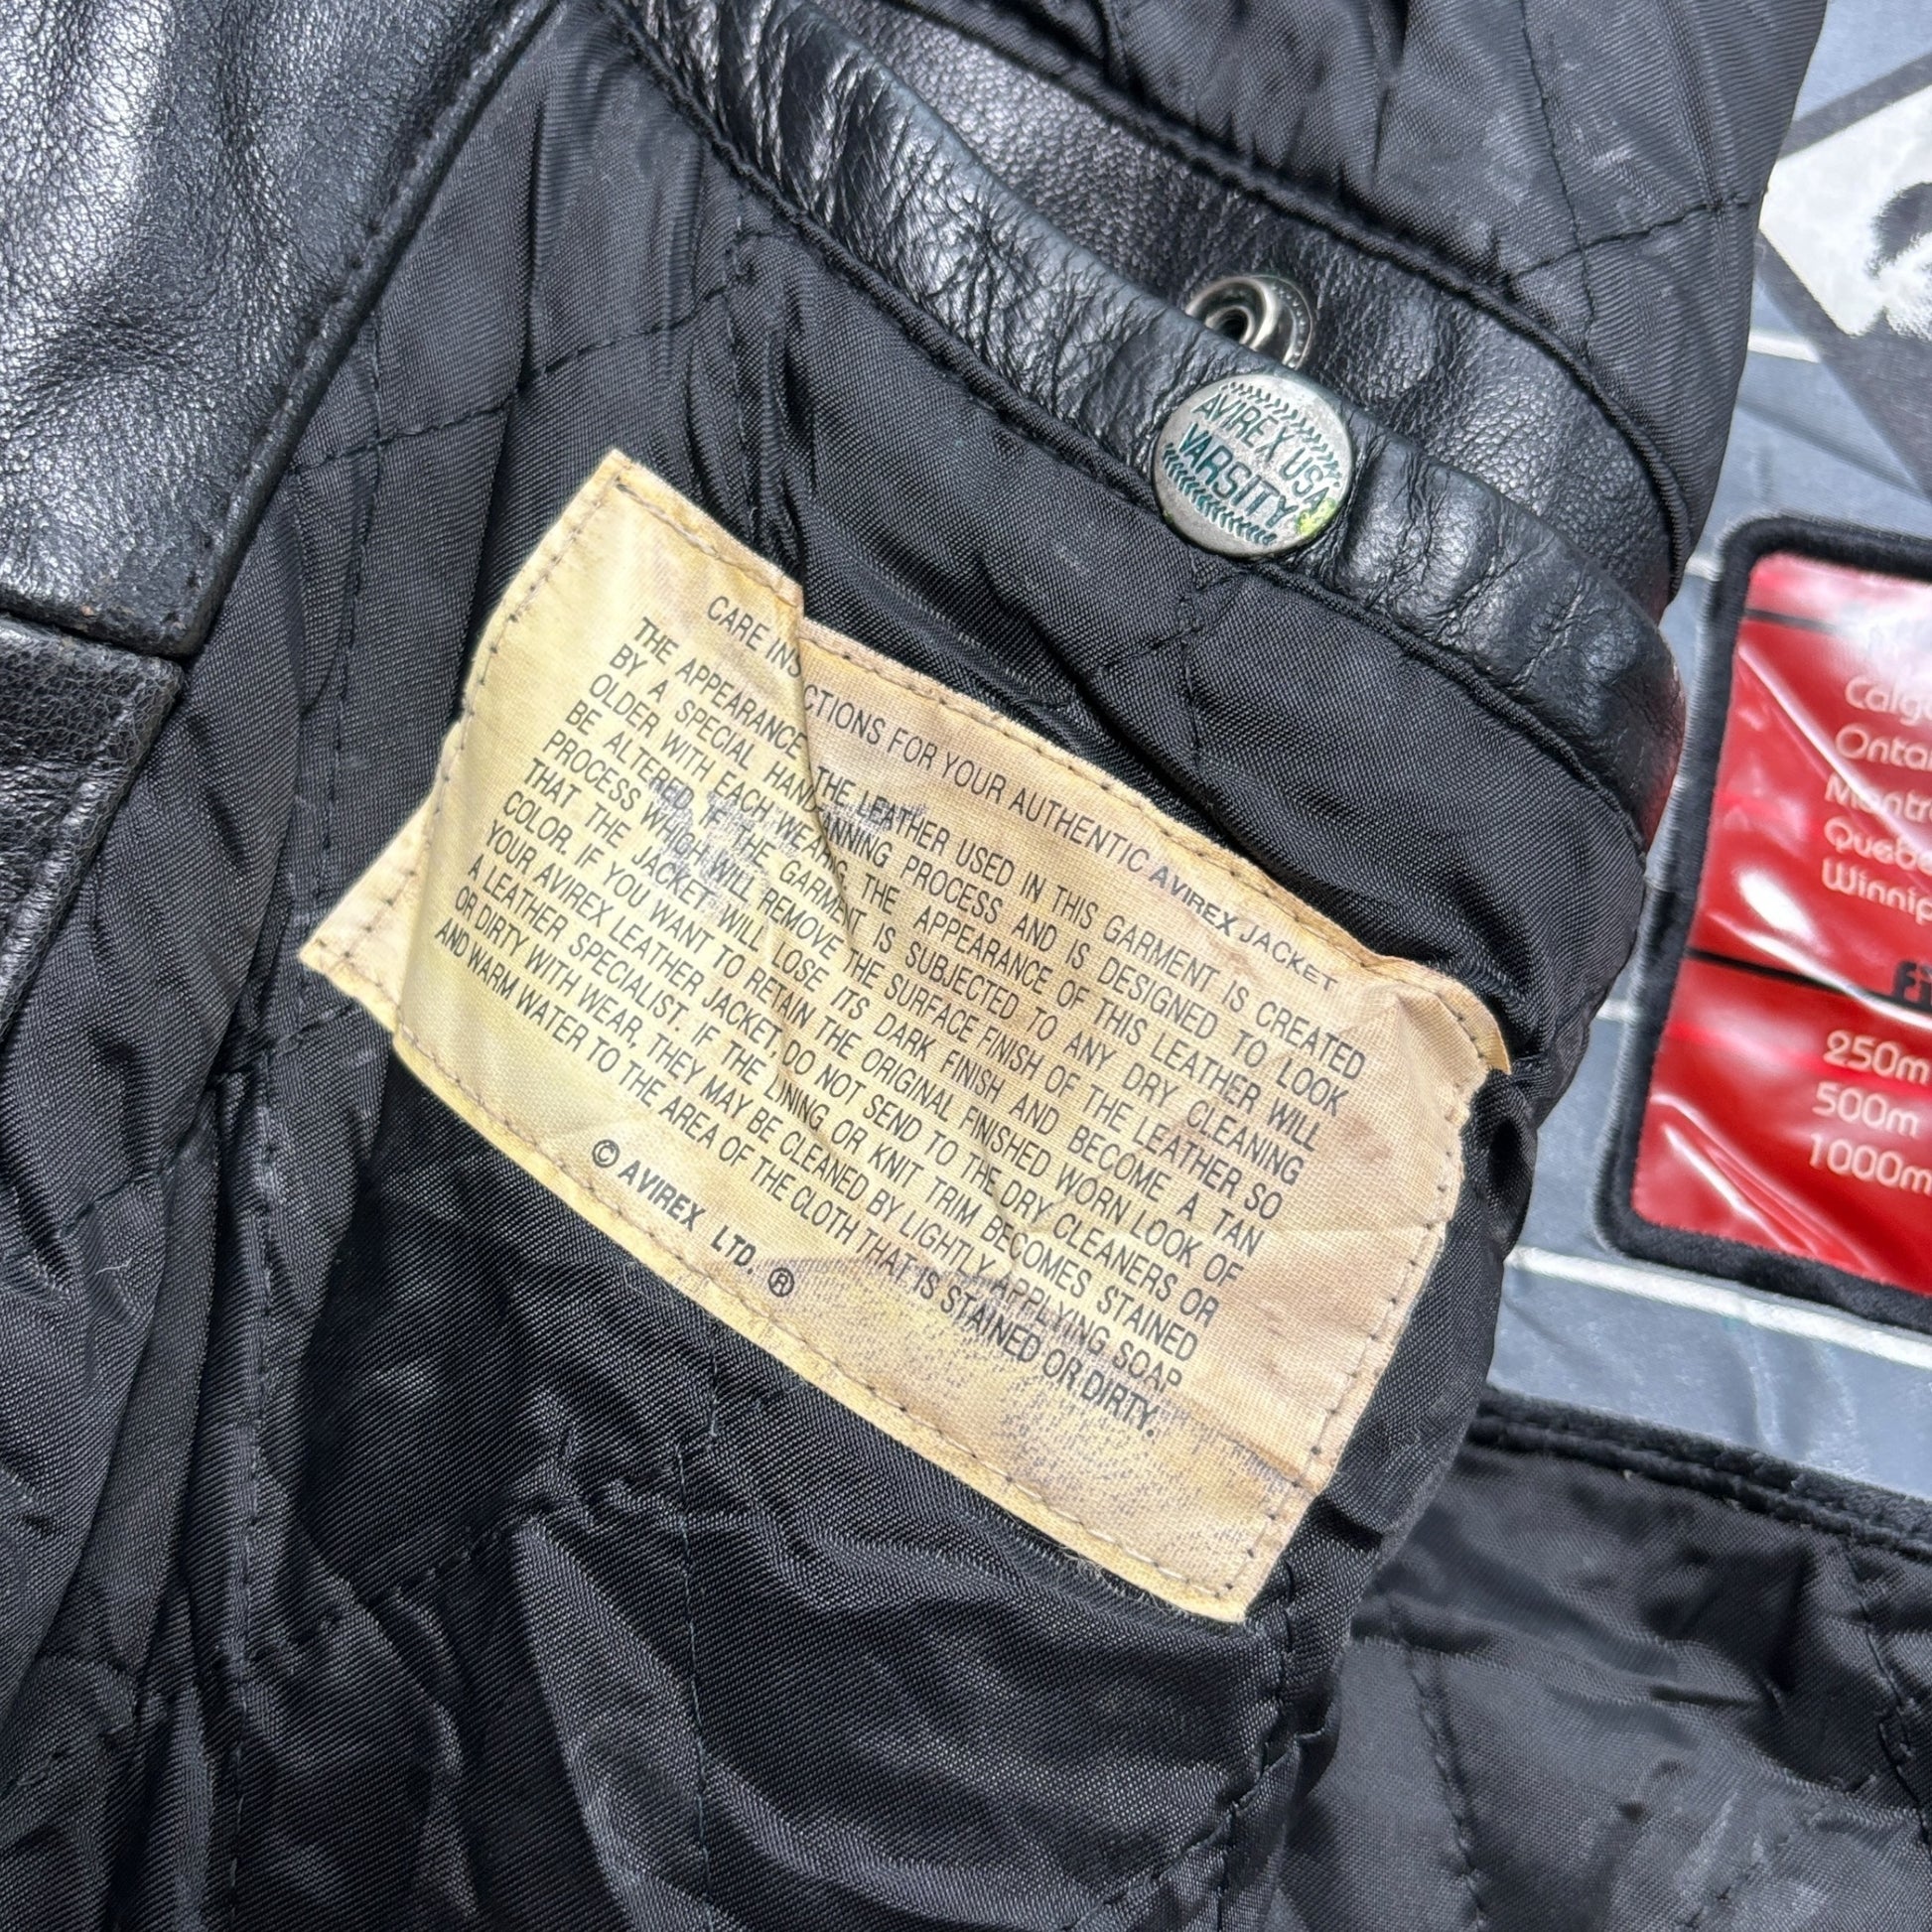 AVIREX USA
VARSITY
CARE INS CTIONS FOR YOUR AUTHENTIC AVIREX JACKET
THE APPEARANCE THE LEATHER USED IN THIS GARMENT IS CREATED
BY A SPECIAL HAND TANNING PROCESS AND IS DESIGNED TO LOOK
OLDER WITH EACH WEARING. THE APPEARANCE OF THIS LEATHER WILL
BE ALTERED, IF THE GARMENT IS SUBJECTED TO ANY DRY CLEANING
PROCESS WHICH WILL REMOVE THE SURFACE FINISH OF THE LEATHER SO
THAT THE JACKET WILL LOSE ITS DARK FINISH AND BECOME A TAN
COLOR. IF YOU WANT TO RETAIN THE ORIGINAL FINISHED WORN LOOK OF
YOUR AVIREX LEATHER JACKET, DO NOT SEND TO THE DRY CLEANERS OR
A LEATHER SPECIALIST. IF THE LINING OR KNIT TRIM BECOMES STAINED
OR DIRTY WITH WEAR, THEY MAY BE CLEANED BY LIGHTLY APPLYING SOAP
AND WARM WATER TO THE AREA OF THE CLOTH THAT IS STAINED OR DIRTY.
© AVIREX LTD. ®
250m
500m
1000m